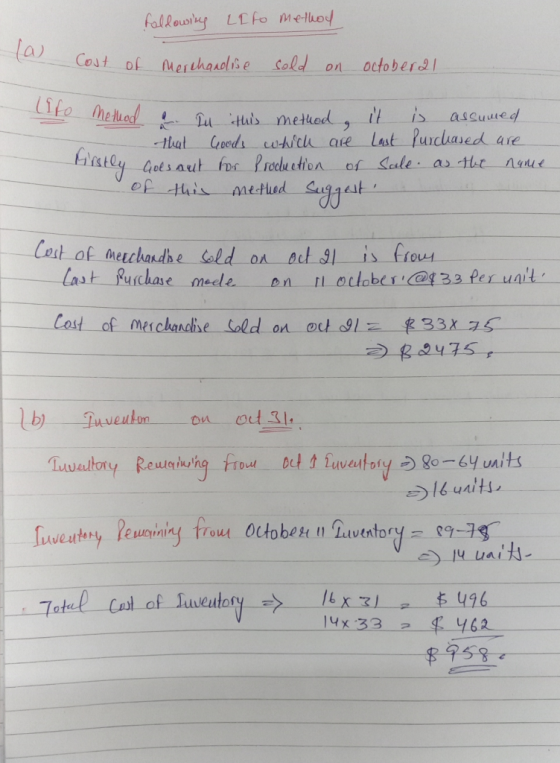 Following LIFO Method
(a) Cost of Merchandise Sold on October 21
LIFO Method :- In this method, it is assumed
that Goods which are Last Purchased are
Firstly Goes out For Production or Sale. as the name
of this method Suggest.
Cost of merchandise Sold on Oct 21 is from
Last Purchase made on 11 October. @$33 Per unit.
Cost of merchandise Sold on Oct 21 = $33 x 75
⇒ $2475.
(b) Inventon on oct 31.
Inventory Remaining from Oct 1 Inventory ⇒ 80-64 units
⇒ 16 units.
Inventory Remaining from October 11 Inventory = 89-75
⇒ 14 units.
Total Cost of Inventory ⇒ 16 x 31 = $496
14 x 33 = $ 462
$958.